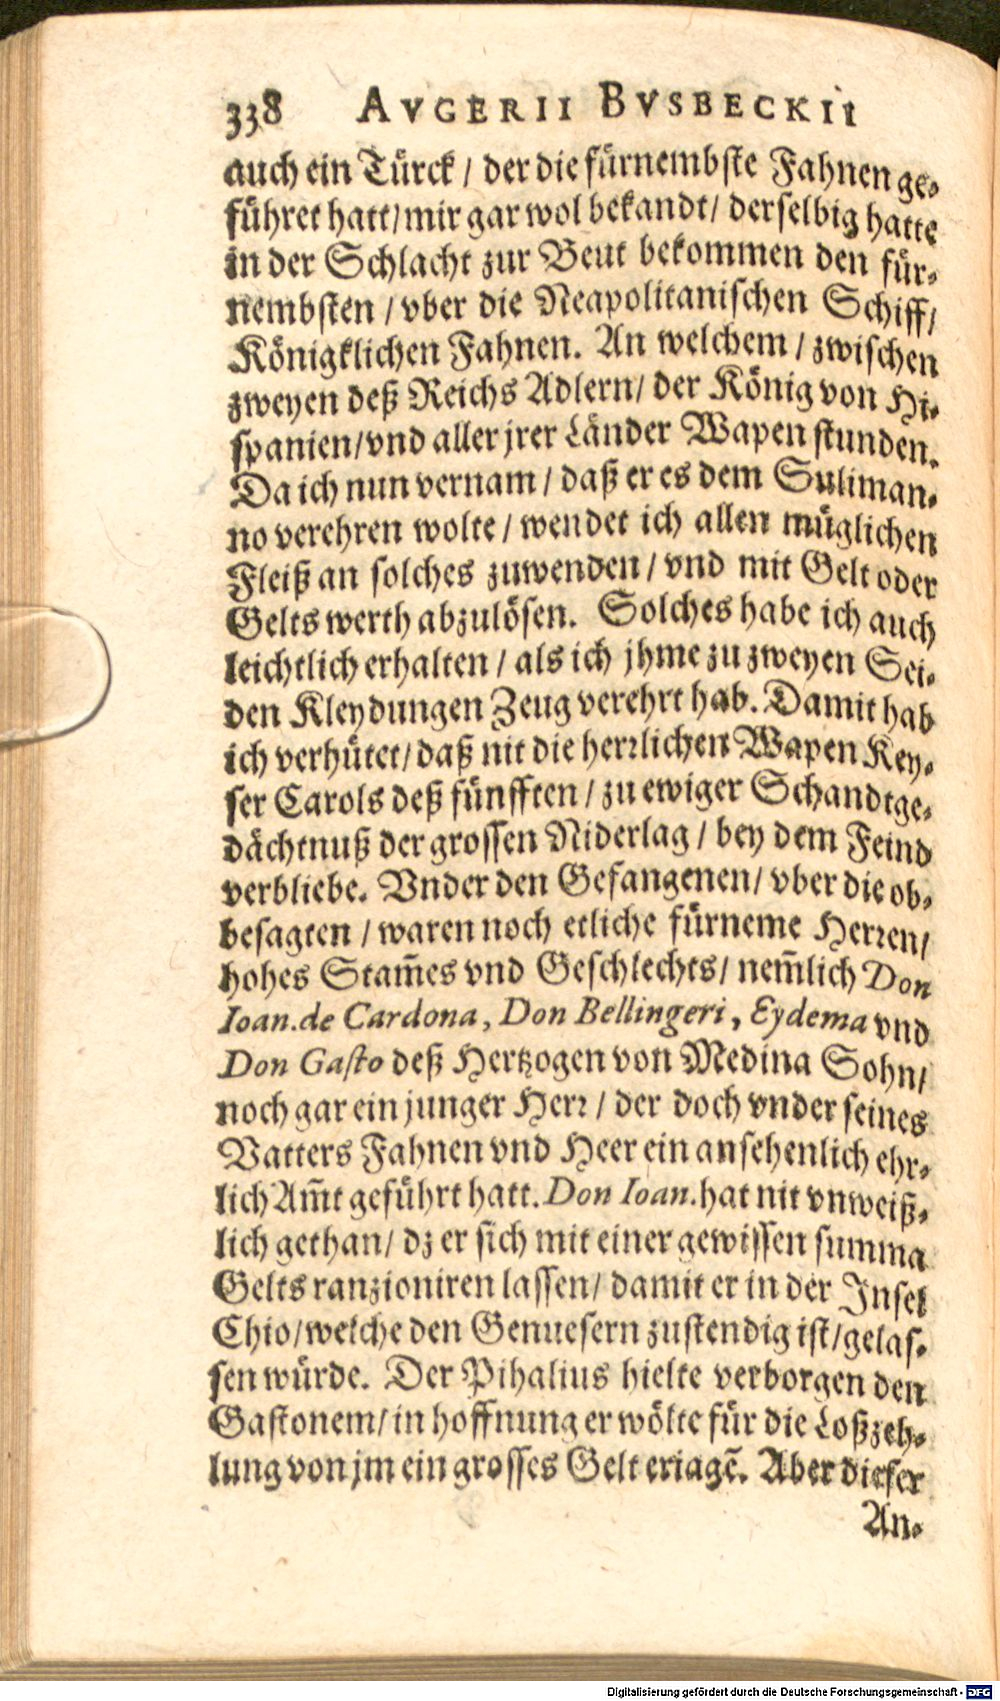 338 AVGERII BVSBECKII
auch ein Türck / der die fürnembste Fahnen ge-
führet hatt/mir gar wol bekandt/ derselbig hatte
in der Schlacht zur Beut bekommen den für-
nembsten / vber die Neapolitanischen Schiff/
Königklichen Fahnen. An welchem / zwischen
zweyen deß Reichs Adlern/ der König von Hi-
spanien/vnd aller jrer Länder Wapen stunden.
Da ich nun vernam / daß er es dem Suliman-
no verehren wolte / wendet ich allen müglichen
Fleiß an solches zuwenden / vnd mit Gelt oder
Gelts werth abzulösen. Solches habe ich auch
leichtlich erhalten / als ich jhme zu zweyen Sei-
den Kleydungen Zeug verehrt hab. Damit hab
ich verhütet/daß nit die herrlichen Wapen Key-
ser Carols deß fünfften / zu ewiger Schandtge-
dächtnuß der grossen Niderlag / bey dem Feind
verbliebe. Vnder den Gefangenen/ vber die ob-
besagten / waren noch etliche fürneme Herren/
hohes Stam̃es vnd Geschlechts/ nem̃lich Don
Ioan.de Cardona, Don Bellingeri, Eydema vnd
Don Gasto deß Hertzogen von Medina Sohn/
noch gar ein junger Herr / der doch vnder seines
Vatters Fahnen vnd Heer ein ansehenlich ehr-
lich Am̃t geführt hatt. Don Ioan. hat nit vnweiß-
lich gethan/ dz er sich mit einer gewissen summa
Gelts ranzioniren lassen/ damit er in der Insel
Chio/welche den Genuesern zustendig ist/gelas-
sen würde. Der Pihalius hielte verborgen den
Gastonem/in hoffnung er wölte für die Loßzeh-
lung von jm ein grosses Gelt eriagē. Aber dieser
An-
Digitalisierung gefördert durch die Deutsche Forschungsgemeinschaft - DFG